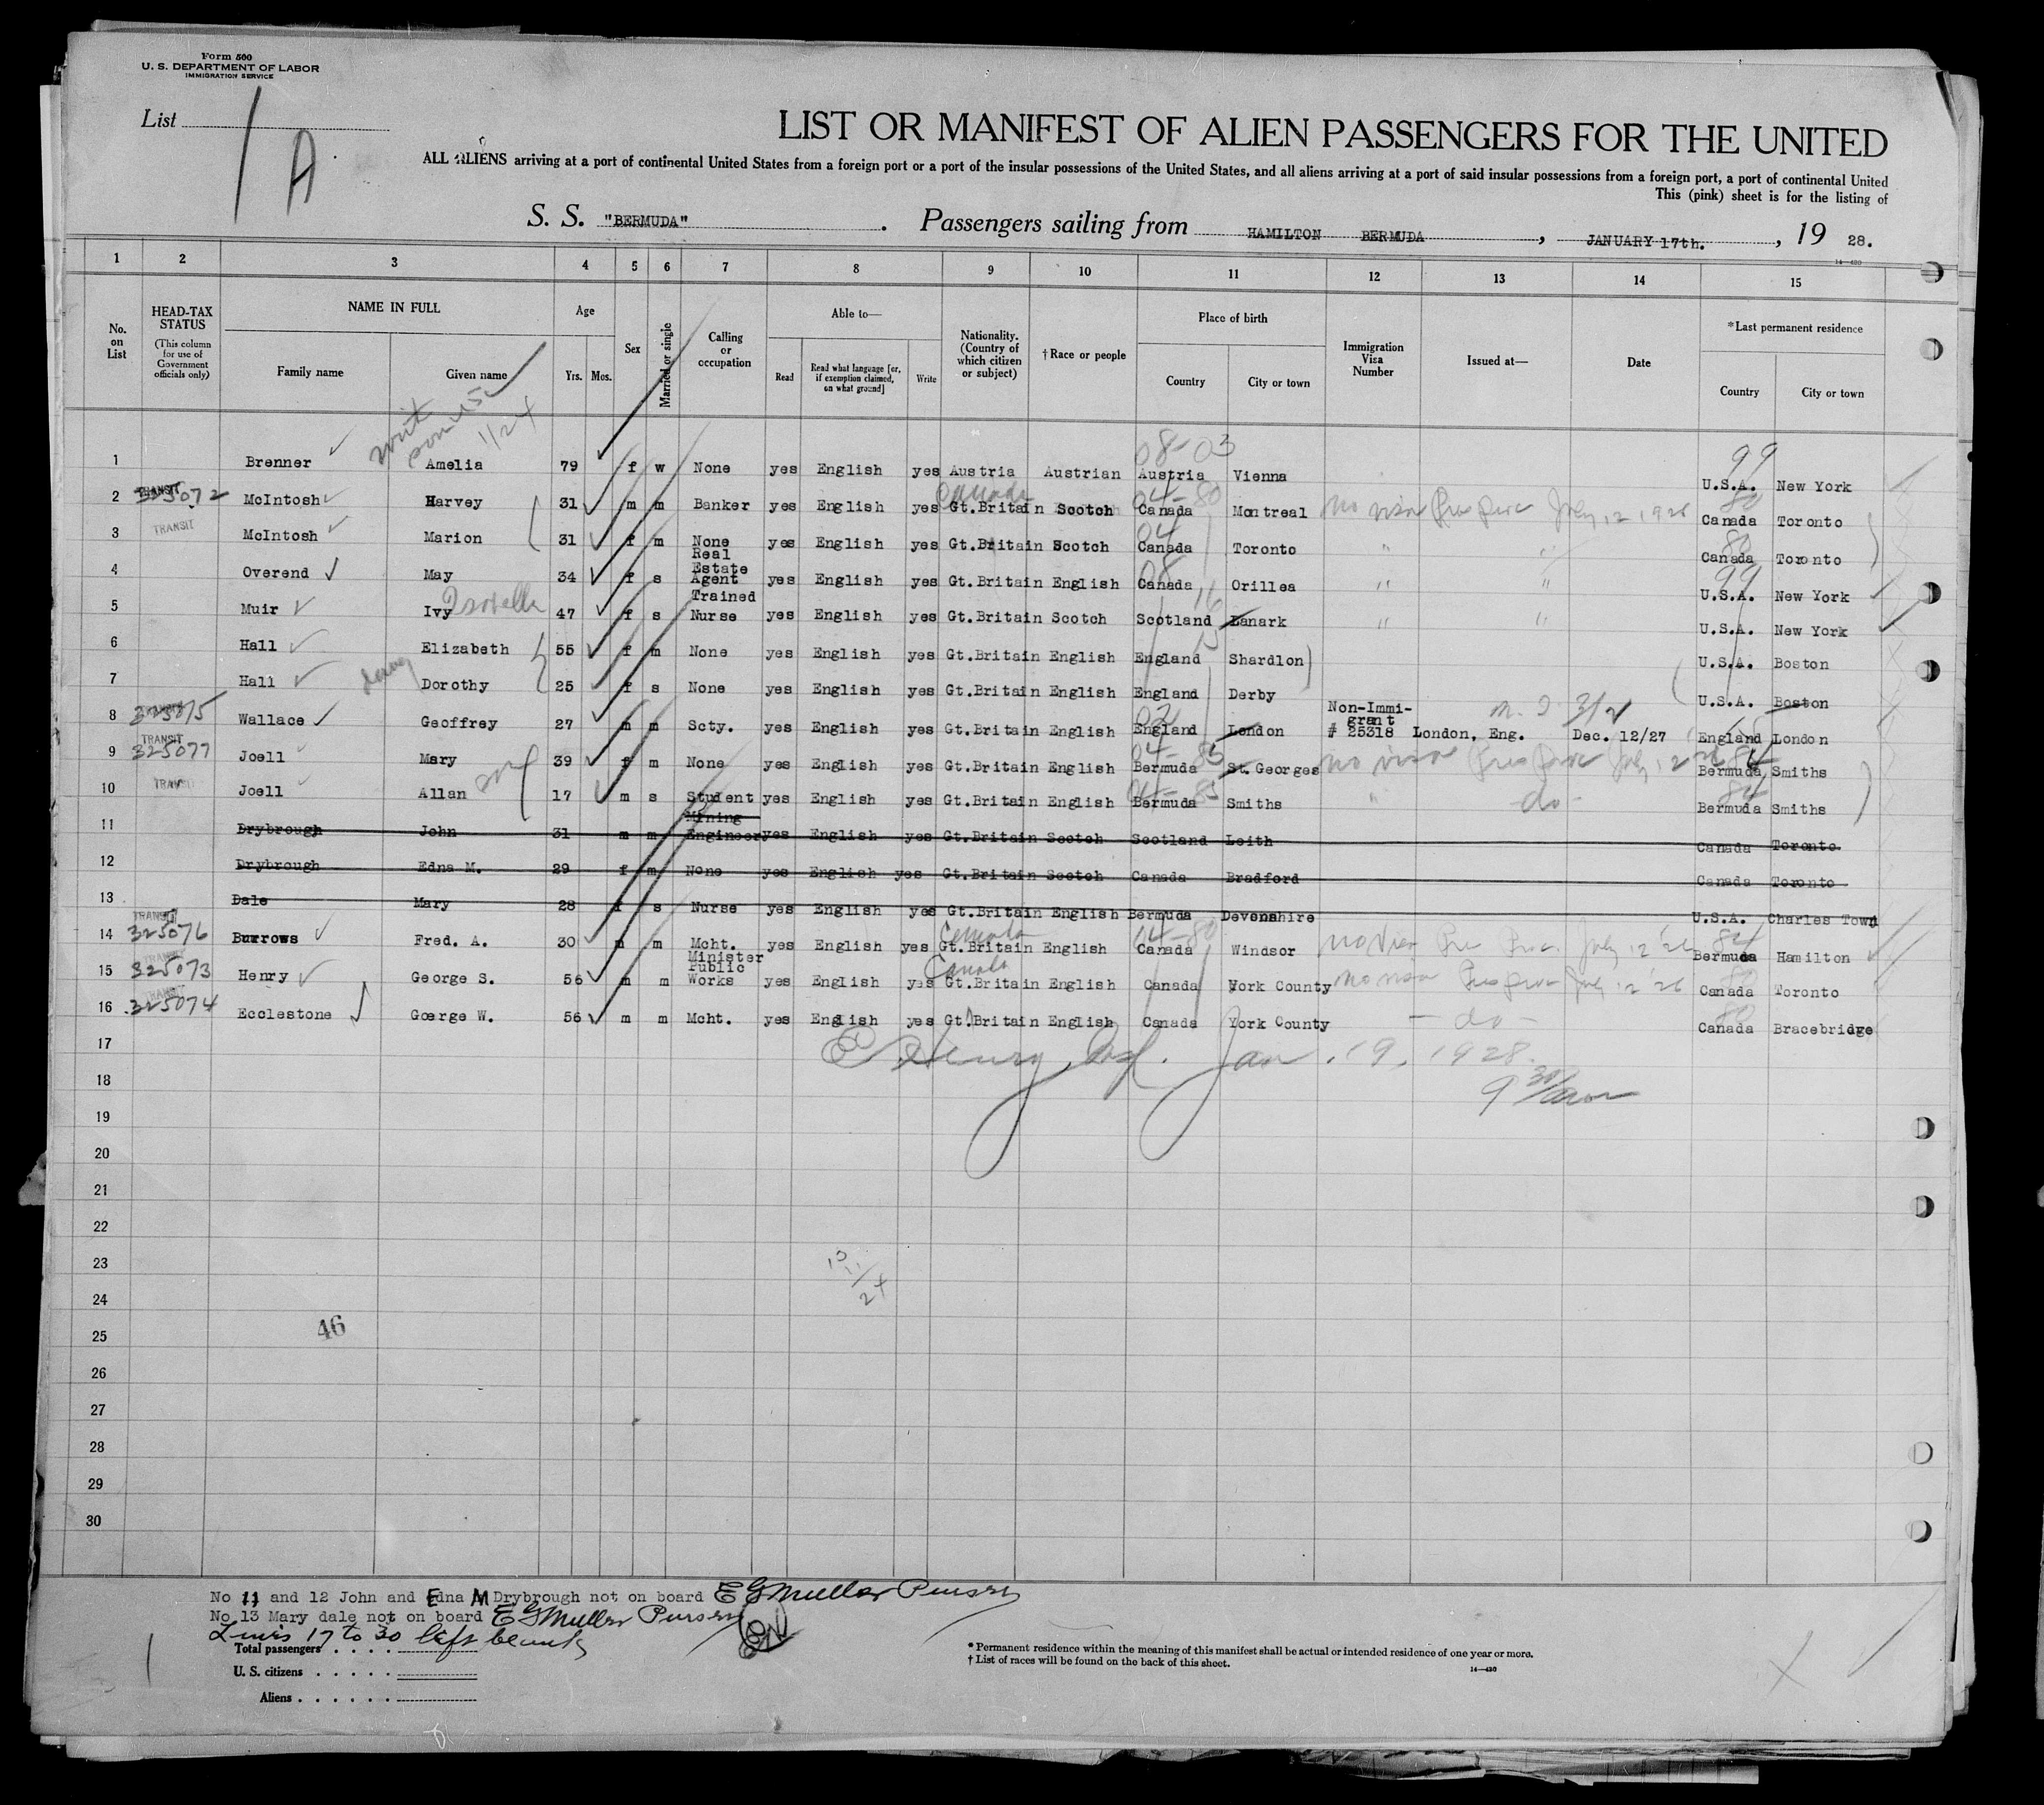 Form 500
U. S. DEPARTMENT OF LABOR
IMMIGRATION SERVICE
List 1 A
LIST OR MANIFEST OF ALIEN PASSENGERS FOR THE UNITED
ALL ALIENS arriving at a port of continental United States from a foreign port or a port of the insular possessions of the United States, and all aliens arriving at a port of said insular possessions from a foreign port, a port of continental United
This (pink) sheet is for the listing of
S. S. "BERMUDA" . Passengers sailing from HAMILTON BERMUDA , JANUARY 17th. , 19 28.
14—430
1 2 3 4 5 6 7 8 9 10 11 12 13 14 15
No. on List
HEAD-TAX STATUS (This column for use of Government officials only)
NAME IN FULL
Family name
Given name
Age
Yrs. Mos.
Sex
Married or single
Calling or occupation
Able to—
Read
Read what language [or, if exemption claimed, on what ground]
Write
Nationality. (Country of which citizen or subject)
† Race or people
Place of birth
Country
City or town
Immigration Visa Number
Issued at—
Date
*Last permanent residence
Country
City or town
1/24
08-03 99
1 Brenner Amelia 79 f w None yes English yes Austria Austrian Austria Vienna U.S.A. New York
TRANSIT 325072 Canada 04-80 80
2 McIntosh Harvey 31 m m Banker yes English yes Gt.Britain Scotch Canada Montreal no visa July 12 1926 Canada Toronto
TRANSIT 04 80
3 McIntosh Marion 31 f m None yes English yes Gt.Britain Scotch Canada Toronto " " Canada Toronto
08 99
4 Overend May 34 f s Real Estate Agent yes English yes Gt.Britain English Canada Orillea " " U.S.A. New York
16
5 Muir Ivy Isabella 47 f s Trained Nurse yes English yes Gt.Britain Scotch Scotland Lanark " " U.S.A. New York
15
6 Hall Elizabeth 55 f m None yes English yes Gt.Britain English England Shardlon U.S.A. Boston
7 Hall Dorothy 25 f s None yes English yes Gt.Britain English England Derby U.S.A. Boston
325075 02
8 Wallace Geoffrey 27 m m Scty. yes English yes Gt.Britain English England London Non-Immi-grant # 25318 London, Eng. Dec. 12/27 England London
TRANSIT 325077 04-85
9 Joell Mary 39 f m None yes English yes Gt.Britain English Bermuda St.Georges no visa July 12 Bermuda Smiths
TRANSIT 04-85 84
10 Joell Allan son 17 m s Student yes English yes Gt.Britain English Bermuda Smiths " do - Bermuda Smiths
11 Drybrough John 31 m m Mining Engineer yes English yes Gt.Britain Scotch Scotland Leith Canada Toronto
12 Drybrough Edna M. 29 f m None yes English yes Gt.Britain Scotch Canada Bradford Canada Toronto
13 Dale Mary 28 f s Nurse yes English yes Gt.Britain English Bermuda Devonshire U.S.A. Charles Town
TRANSIT 325076 Canada 04-80 84
14 Burrows Fred. A. 30 m m Mcht. yes English yes Gt.Britain English Canada Windsor No Visa July 12 '26 Bermuda Hamilton
TRANSIT 325073 Canada 80
15 Henry George S. 56 m m Minister Public Works yes English yes Gt.Britain English Canada York County no visa July 12 '26 Canada Toronto
TRANSIT 325074 80
16 Ecclestone Goerge W. 56 m m Mcht. yes English yes Gt.Britain English Canada York County - do - Canada Bracebridge
17 Henry Jan. 19, 1928.
18 9 30/am
19
20
21
22
23
24
25
46
26
27
28
29
30
No 11 and 12 John and Edna M Drybrough not on board E G Muller Purser
No 13 Mary dale not on board E G Muller Purser
Lines 17 to 30 left blank
Total passengers . . . .
U. S. citizens . . . . .
Aliens . . . . . .
* Permanent residence within the meaning of this manifest shall be actual or intended residence of one year or more.
† List of races will be found on the back of this sheet.
14—430